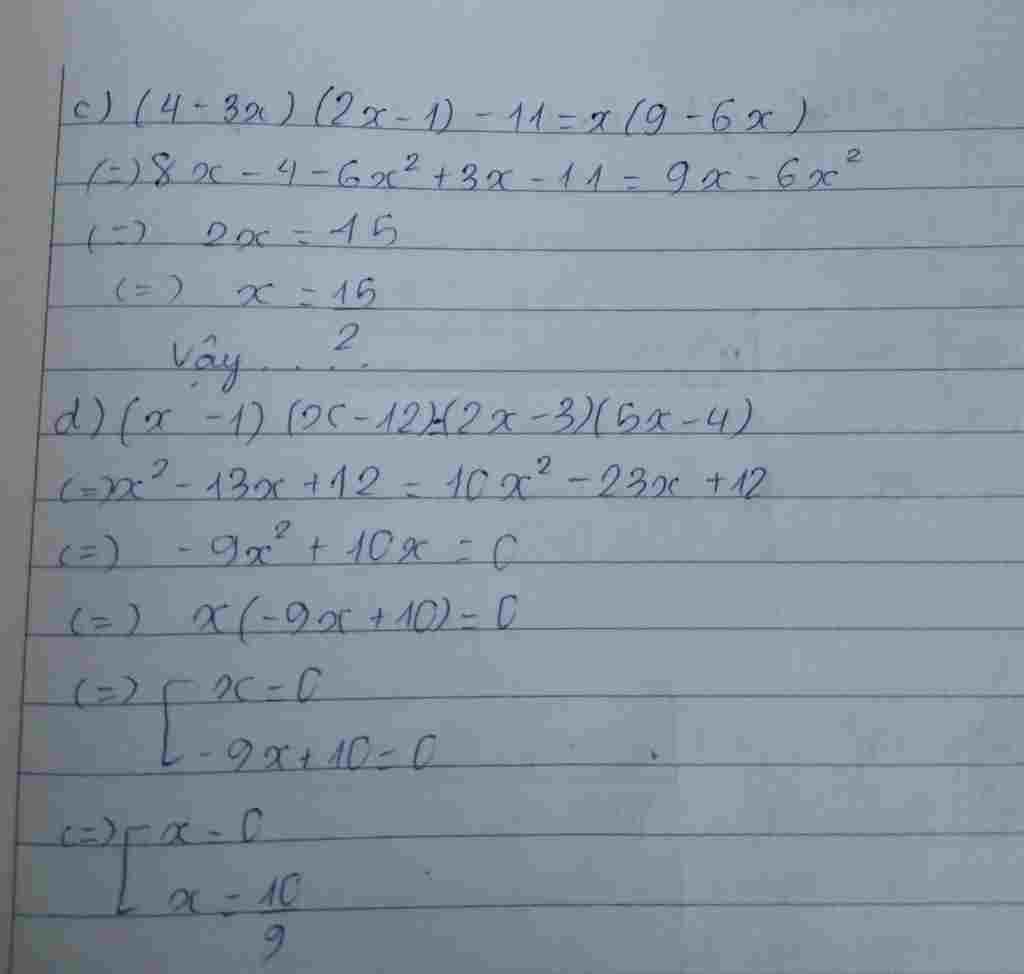 c) (4 - 3x) (2x - 1) - 11 = x (9 - 6x)
(=) 8x - 4 - 6x² + 3x - 11 = 9x - 6x²
(=) 2x = 15
(=) x = 15/2
Vậy . . . .
d) (x - 1) (x - 12) = (2x - 3)(5x - 4)
(=) x² - 13x + 12 = 10x² - 23x + 12
(=) - 9x² + 10x = 0
(=) x (-9x + 10) = 0
(=) [ x = 0
- 9x + 10 = 0
(=) [ x = 0
x = 10/9